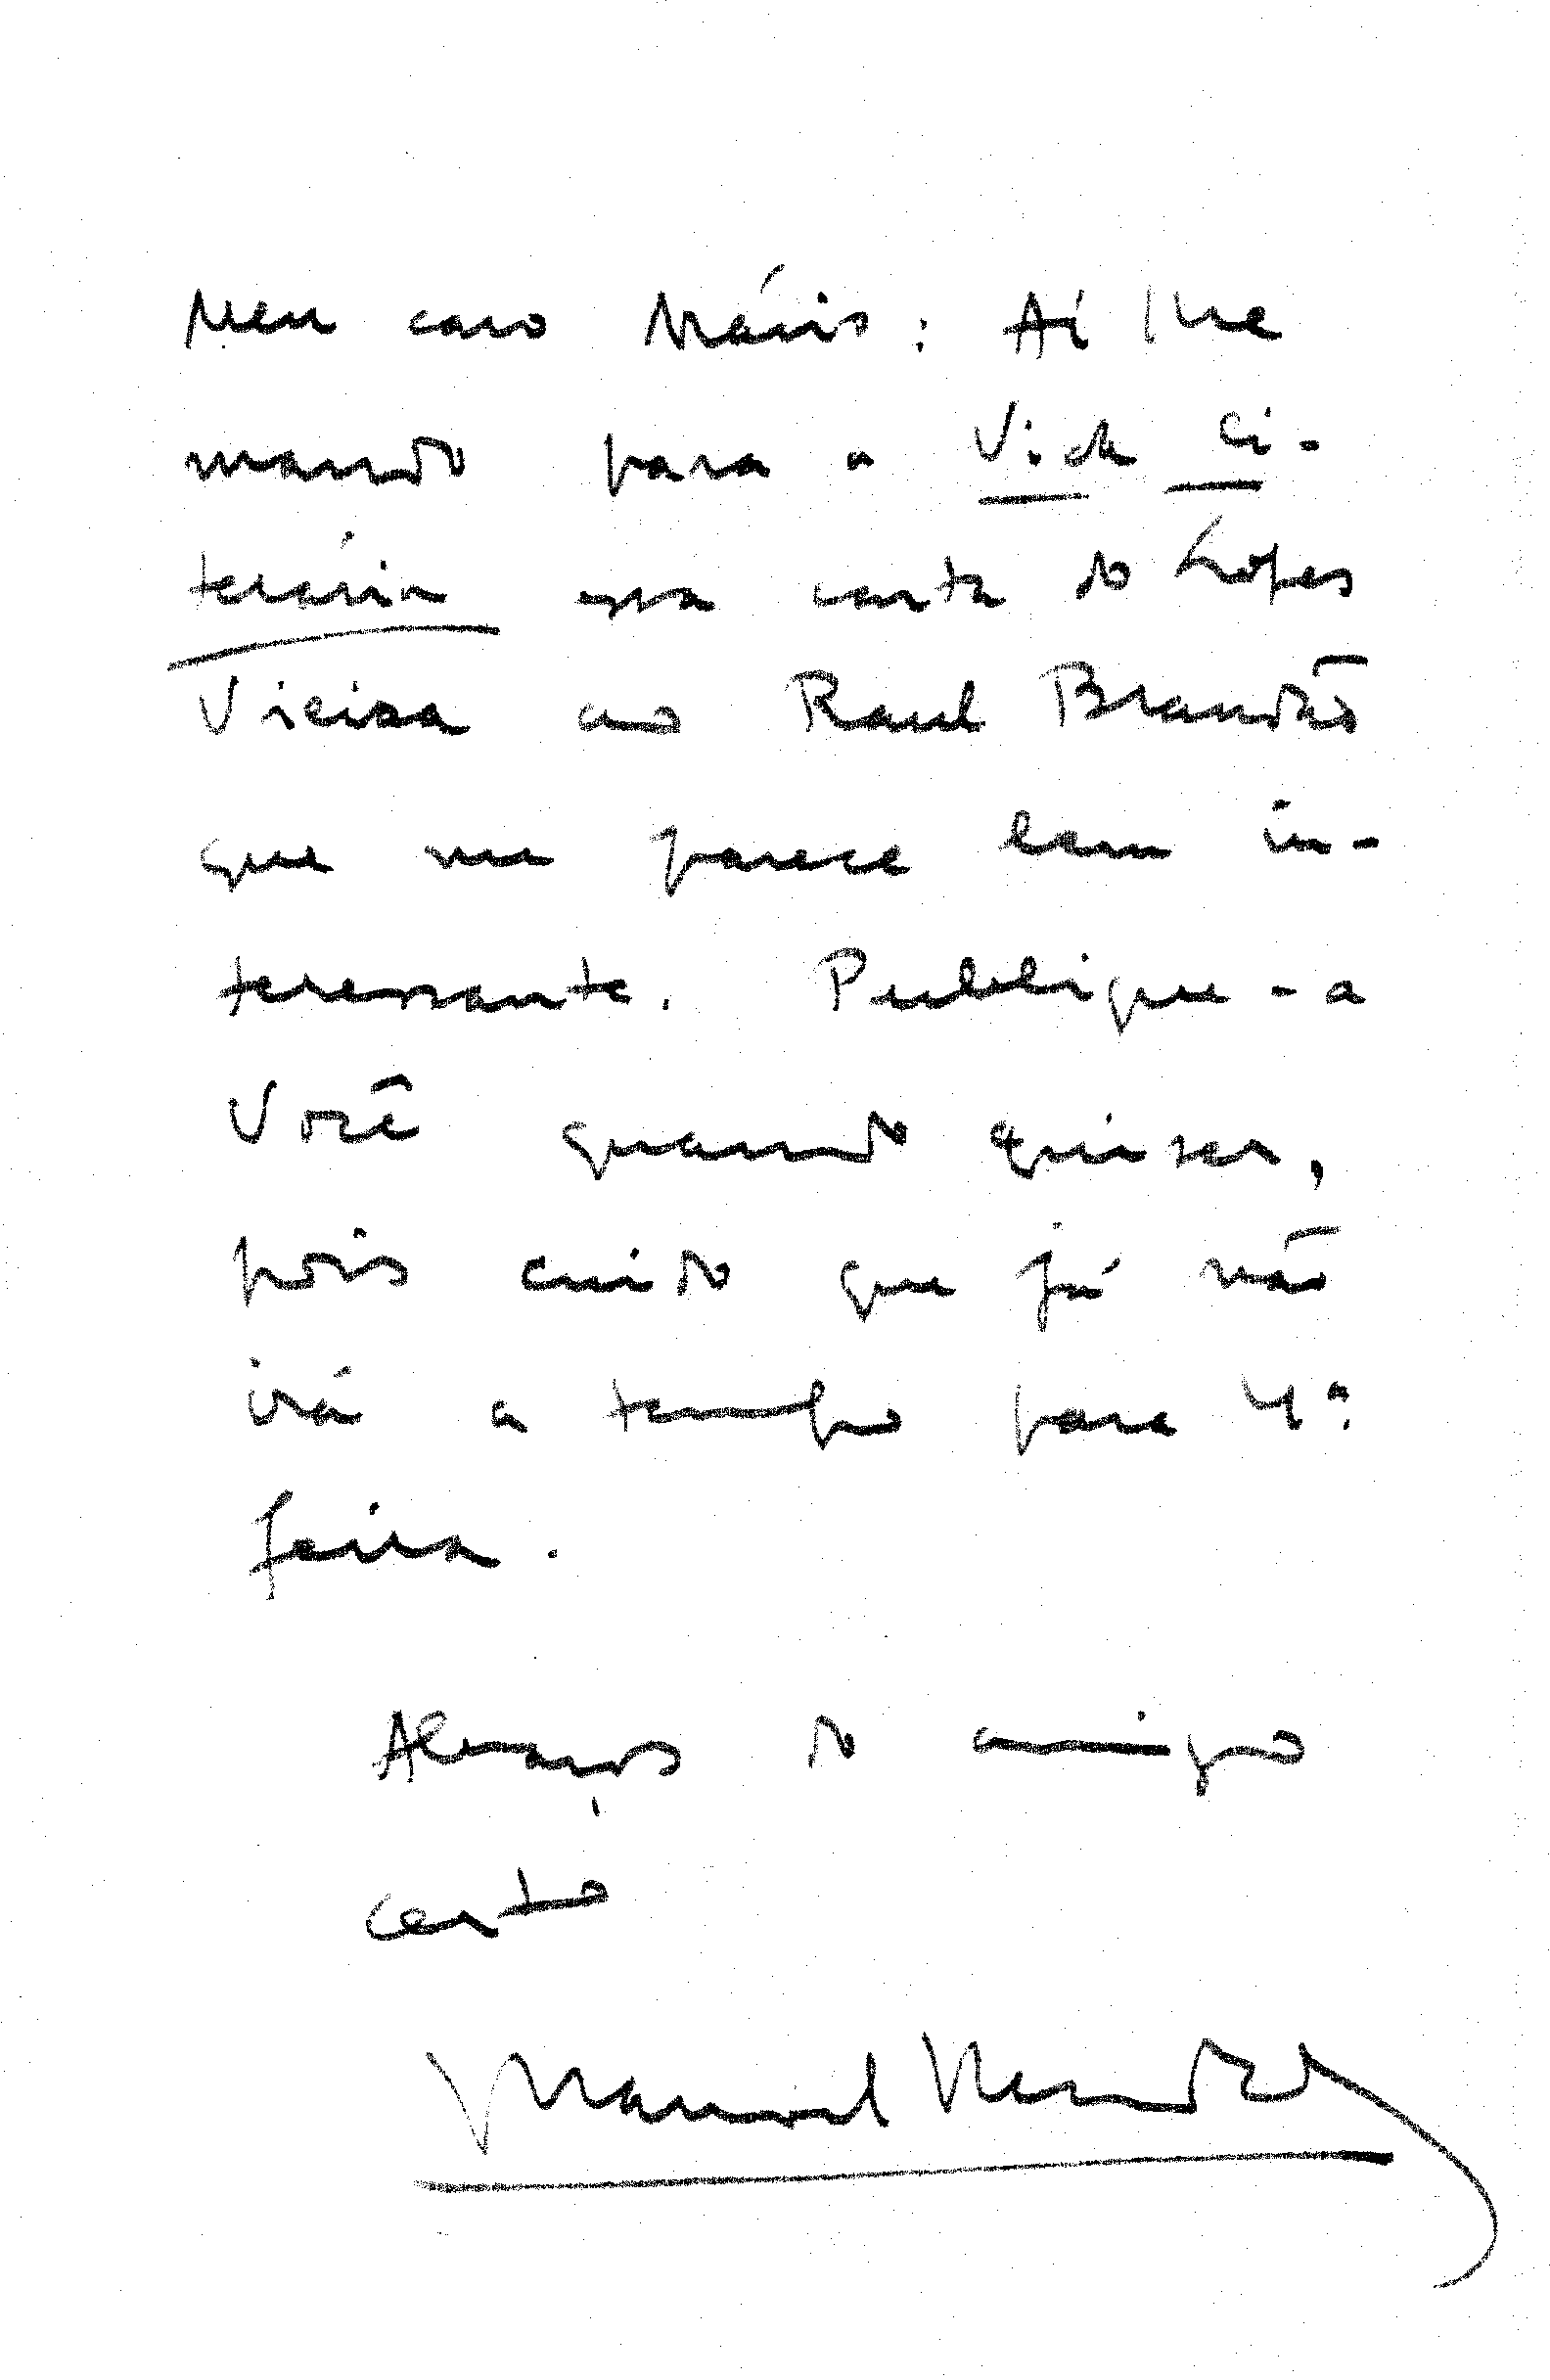 Meu caro Mário: Aí lhe
mando para a Vida Li-
terária essa carta do Lopes
Vieira ao Raul Brandão
que me parece bem in-
teressante. Publique-a
Você quando quiser,
pois cuido que já não
irá a tempo para 4ª
feira.
Abraços do amigo
certo
Manuel Mendes